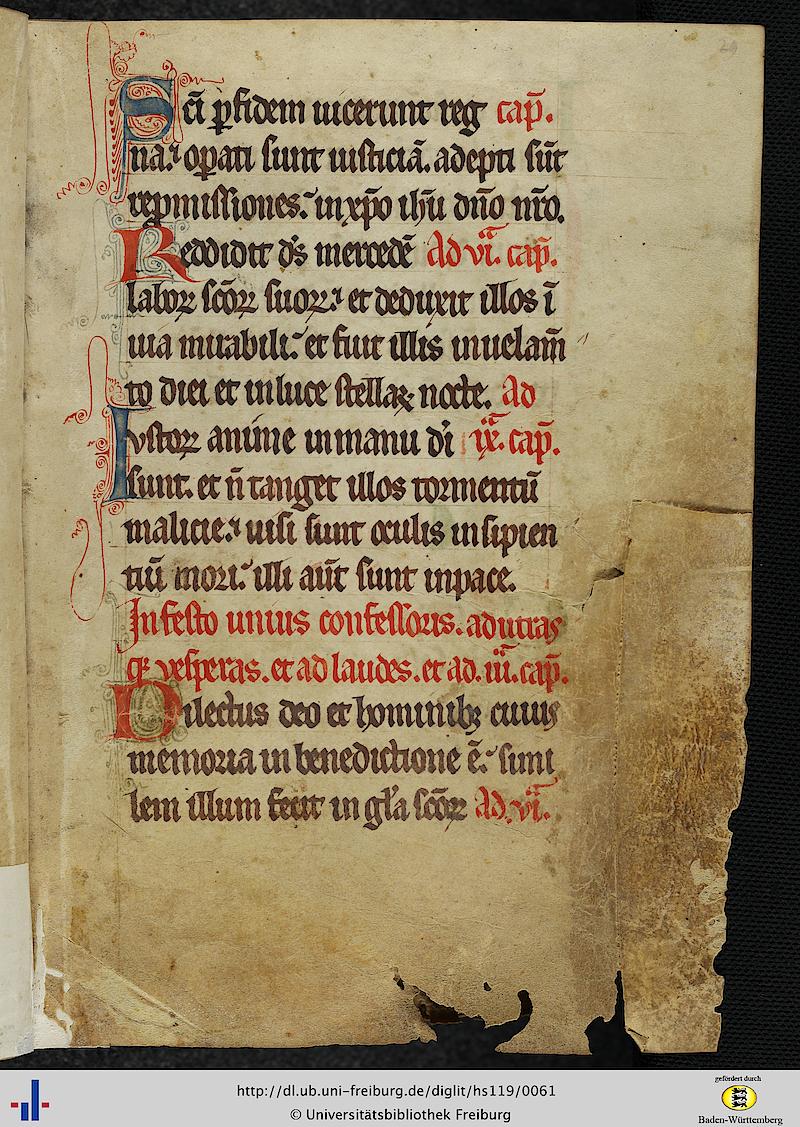 29
Sc̄i ꝑfidem uicerunt reg cap̄.
na. ⁊ oꝑati sunt iusticiā. adepti sūt
repmissiones. in xp̄o ih̄u dn̄o nr̄o.
Reddidit ds̄ mercedē Ad vi. cap̄.
laboꝝ sc̄oꝝ suoꝝ. ⁊ et deduxit illos ī
uia mirabili. et fuit illis inuelam̄
to diei et inluce stellaꝝ nocte. Ad
Iustoꝝ anime inmanu dī ix. cap̄.
sunt. et n̄ tanget illos tormentū
malicie. uisi sunt oculis insipien
tiū mori. illi aūt sunt inpace.
In festo unius confessoris. adutras
qꝫ vesperas. et ad laudes. et ad. iii. cap̄.
Dilectus deo et hominibꝫ cuius
memoria in benedictione ē. simi
lem illum fecit in gl̄a sc̄oꝝ Ad. vi.
http://dl.ub.uni-freiburg.de/diglit/hs119/0061
© Universitätsbibliothek Freiburg
gefördert durch
Baden-Württemberg